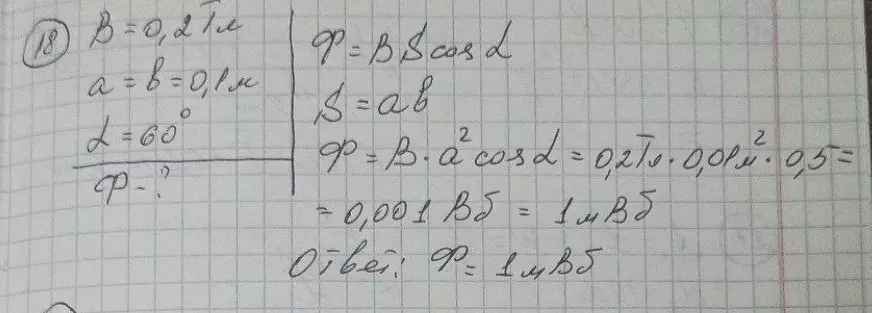 18
B = 0,2 Тл
a = b = 0,1 м
α = 60°
Ф - ?
Ф = B S cos α
S = ab
Ф = B · a² cos α = 0,2 Тл · 0,01 м² · 0,5 =
= 0,001 Вб = 1 мВб
Ответ: Ф = 1 мВб